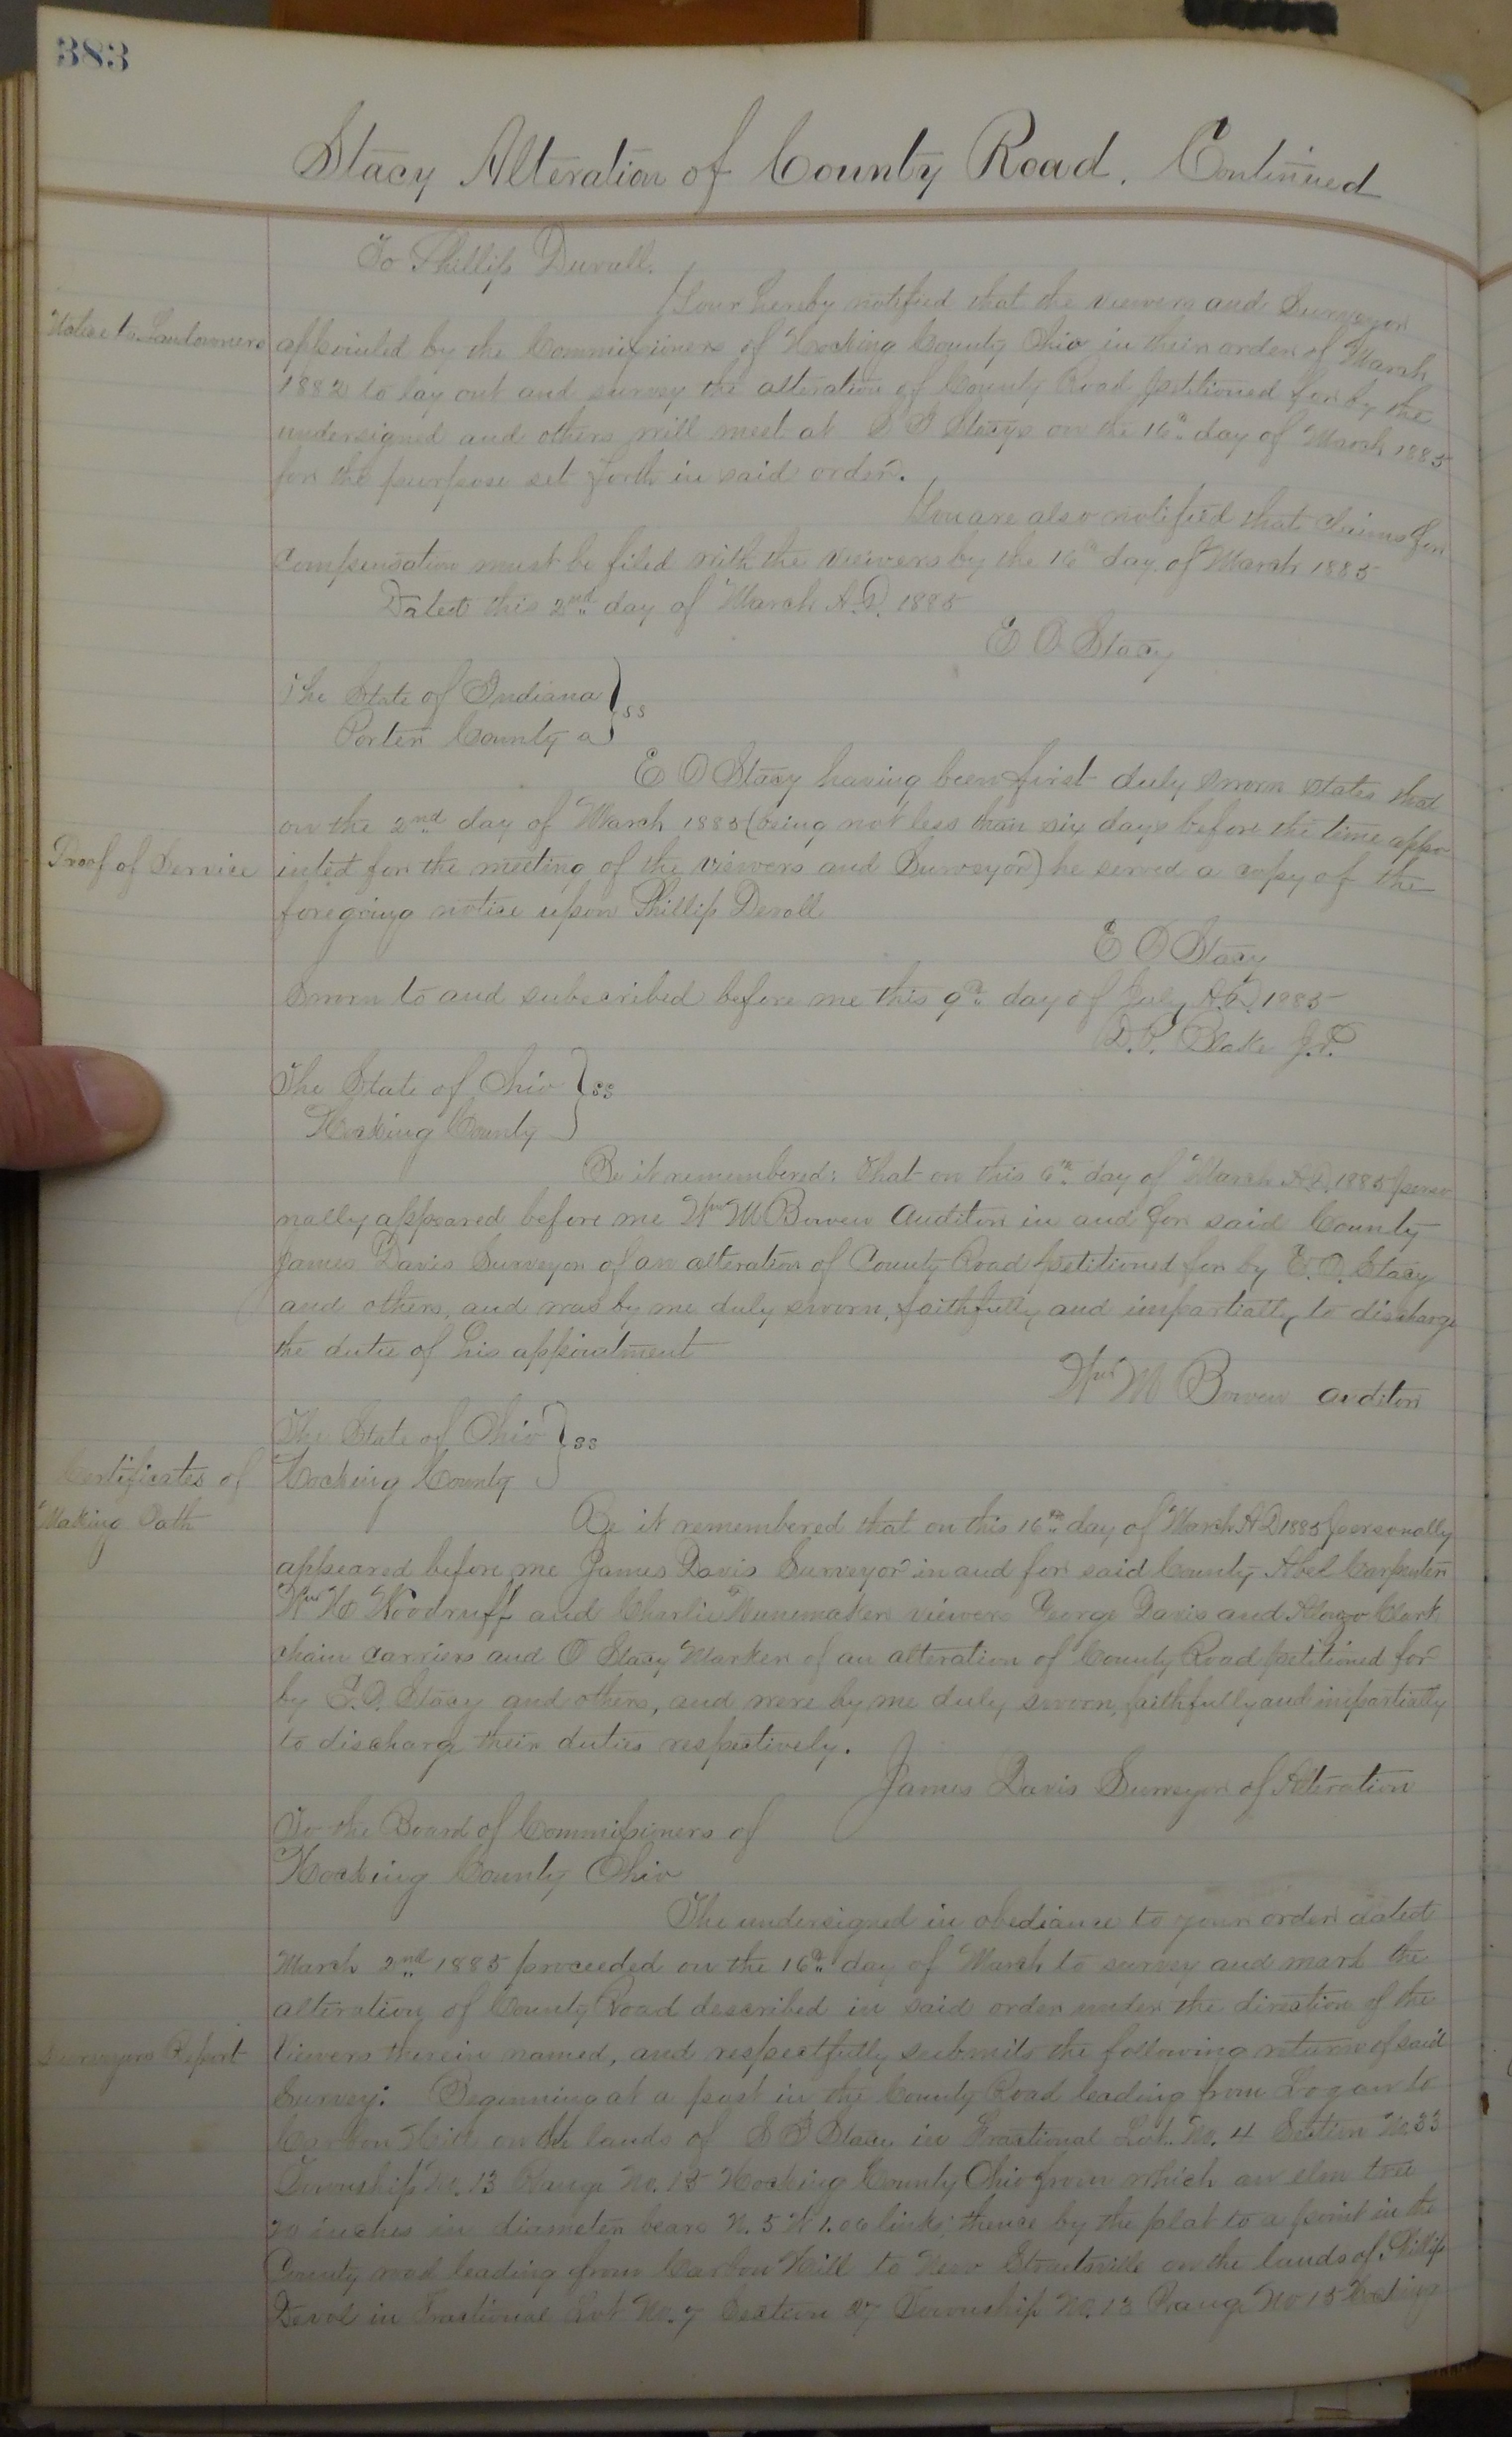 383
Stacy Alteration of County Road. Continued
To Phillip Duvall.
Your hereby notified that the viewers and Surveyor
Notice to Landowners
appointed by the Commissioners of Hocking County Ohio in their order of March
1882 to lay out and survey the alteration of County Road petitioned for by the
undersigned and others will meet at S S Stacys on the 16th day of March 1885
for the purpose set forth in said order.
You are also notified that claims for
compensation must be filed with the viewers by the 16th day of March 1885
Dated this 2nd day of March A.D. 1885
E O Stacy
The State of Indiana } ss
Porter County a
E O Stacy having been first duly sworn states that
on the 2nd day of March 1885 (being not less than six days before the time appo
Proof of Service
inted for the meeting of the viewers and Surveyor) he served a copy of the
foregoing notice upon Phillip Devoll
E O Stacy
Sworn to and subscribed before me this 9th day of July A.D. 1885
D.P. Blake J.P.
The State of Ohio } ss
Hocking County
Be it remembered: that on this 6th day of March A.D. 1885 perso
nally appeared before me Wm M Bowen Auditor in and for said County
James Davis Surveyor of an alteration of County Road petitioned for by E. O. Stacy
and others, and was by me duly sworn, faithfully and impartially to discharge
the dutie of his appointment
Wm M Bowen auditor
The State of Ohio } ss
Certificates of
Hocking County
Making Oath
Be it remembered that on this 16th day of March A D 1885 personally
appeared before me James Davis Surveyor in and for said County Abel Carpenter
Wm H Woodruff and Charlie Nunemaker viewers George Davis and Alonzo Clark
chain carriers and O Stacy Marker of an alteration of County Road petitioned for
by E. O. Stacy and others, and were by me duly sworn, faithfully and impartially
to discharg their duties respectively.
James Davis Surveyor of Alteration
To the Board of Commissioners of
Hocking County Ohio
The undersigned in obediance to your order dated
March 2nd 1885 proceeded on the 16th day of March to survey and mark the
alteration of County Road described in said order under the direction of the
Surveyors Report
Viewers therein named, and respectfully submits the following return of said
Survey: Beginning at a post in the County Road leading from Logan to
Carbon Hill on the lands of S S Stacy in Fractional Lot. No. 4 Section No 33
Township No. 13 Range No. 15 Hocking County Ohio from which an elm tree
20 inches in diameter bears N. 5 W 1.06 links; thence by the plat to a point in the
County road leading from Carbon Hill to New Straitsville on the lands of Phillip
Devol in Fractional Lot No. 7 Section 27 Township No. 13 Range No 15 Hocking